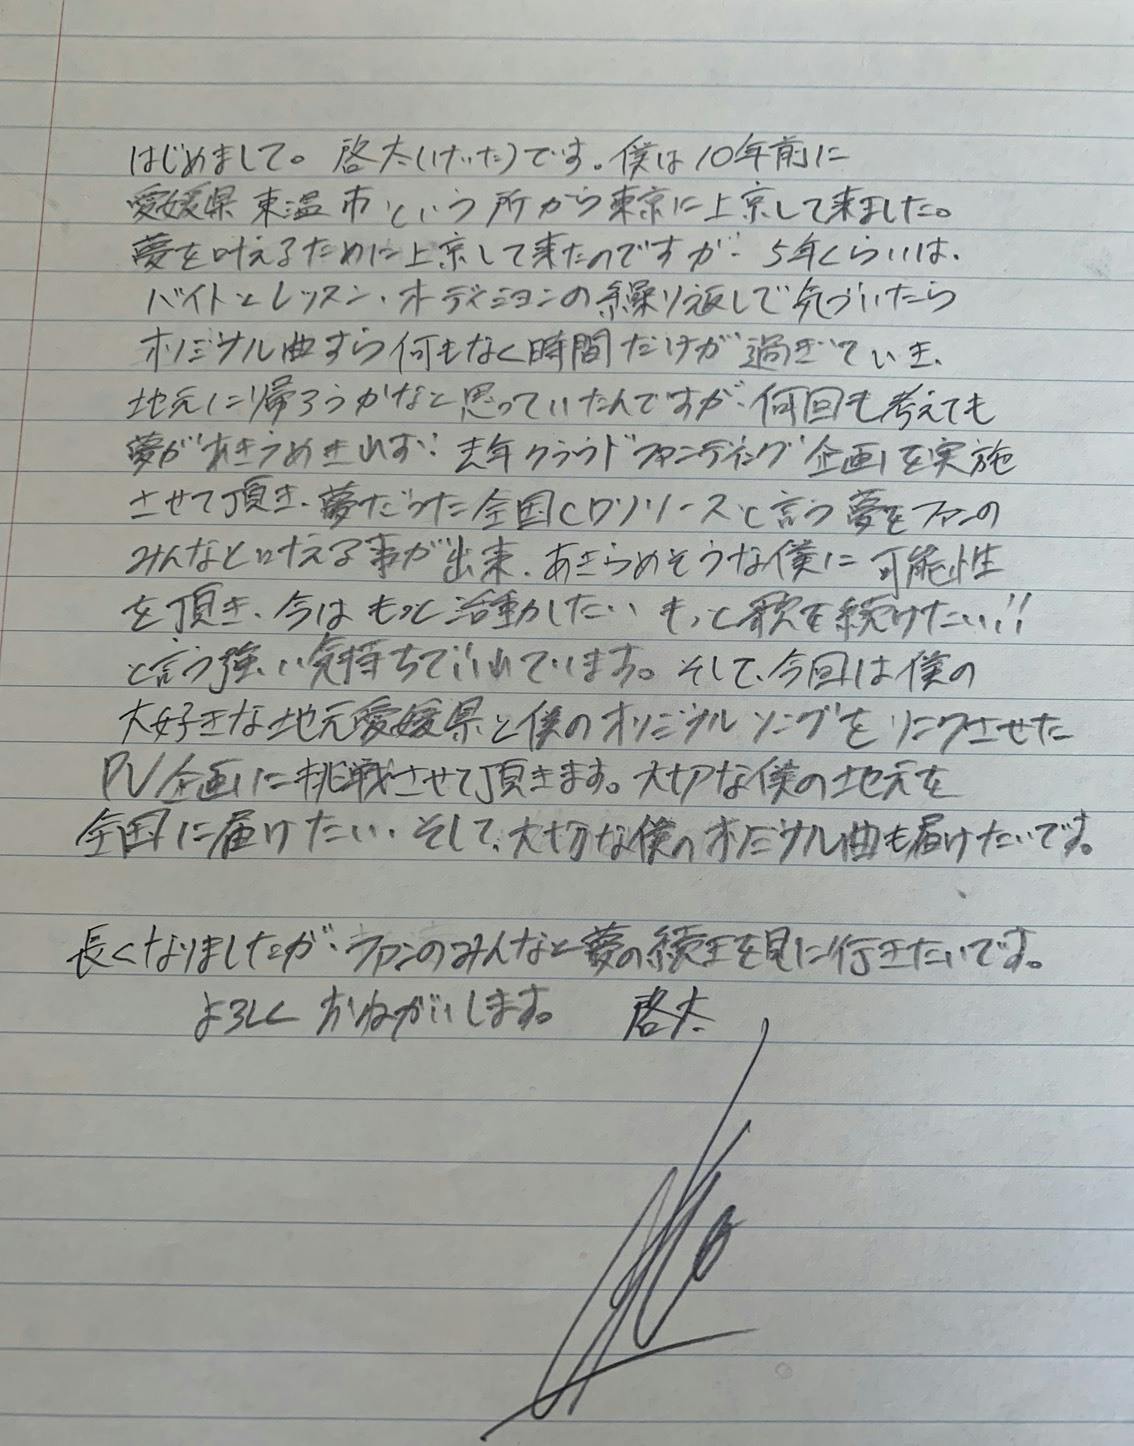 はじめまして。啓太(けいた)です。僕は10年前に
愛媛県東温市という所から東京に上京して来ました。
夢を叶えるために上京して来たのですが、5年くらいは、
バイトとレッスン、オーディションの繰り返しで気づいたら
オリジナル曲すら何もなく時間だけが過ぎていき、
地元に帰ろうかなと思っていたんですが、何回も考えても
夢があきらめきれず、去年クラウドファンディング企画を実施
させて頂き、夢だった全国CDリリースと言う夢をファンの
みんなと叶える事が出来、あきらめそうな僕に可能性
を頂き、今はもっと活動したいもっと歌を続けたい!!
と言う強い気持ちで溢れています。そして、今回は僕の
大好きな地元愛媛県と僕のオリジナルソングをリンクさせた
PV企画に挑戦させて頂きます。大切な僕の地元を
全国に届けたい、そして、大切な僕のオリジナル曲も届けたいです。
長くなりましたが、ファンのみんなと夢の続きを見に行きたいです。
よろしくおねがいします。 啓太